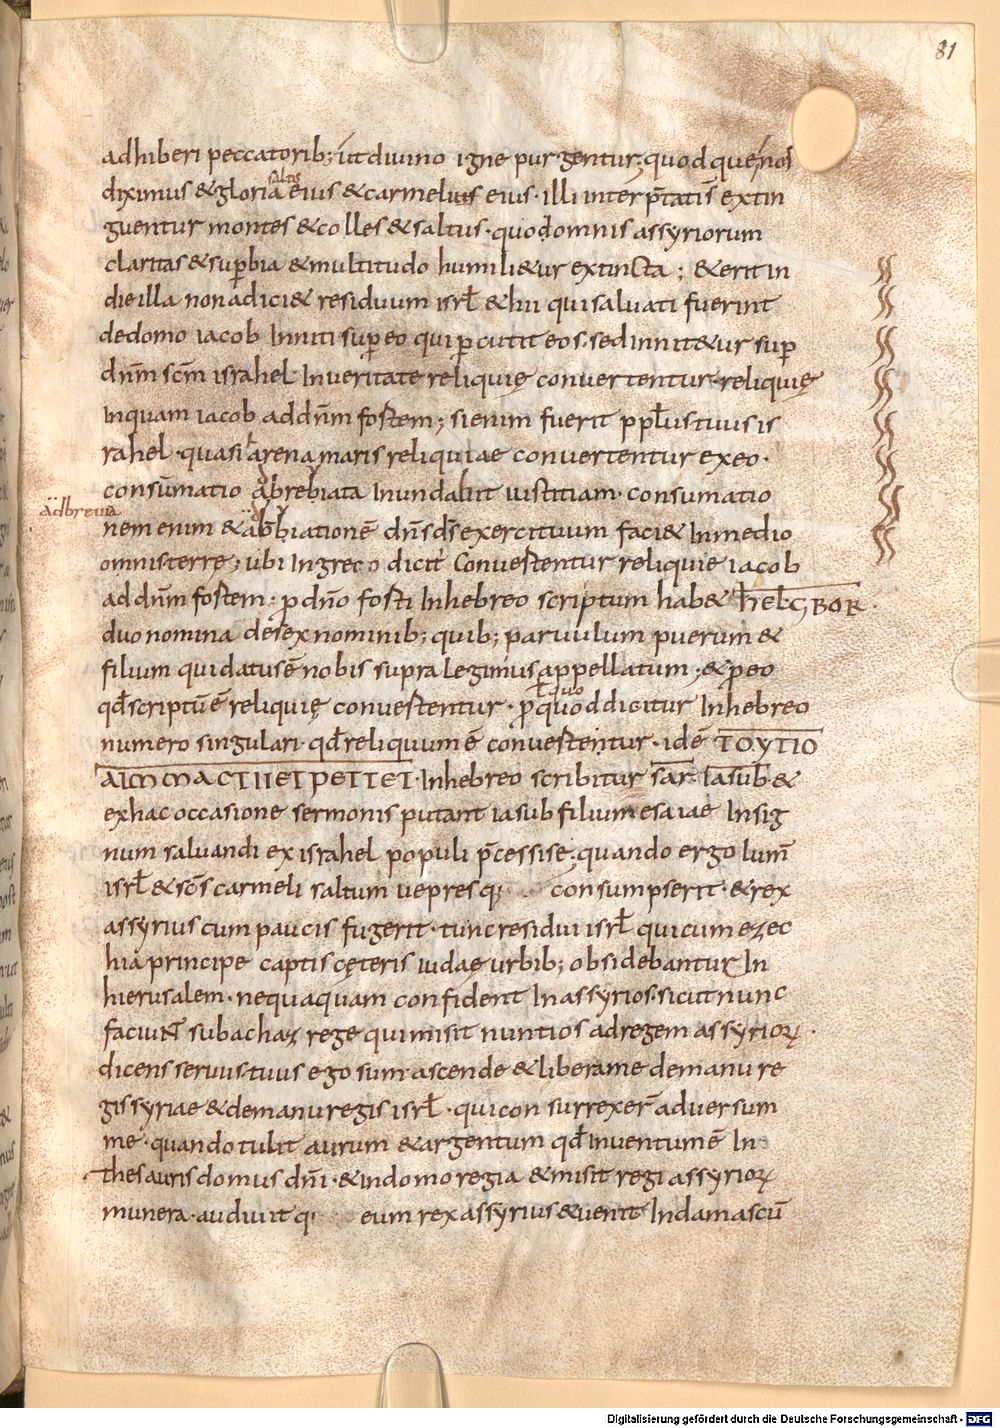 81
adhiberi peccatorib; ut divino igne purgentur; quod que nos
diximus & gloria eius & carmelus eius · illi interp̄tatis̄ extin
saltus
guentur montes & colles & saltus · quod omnis assyriorum
claritas & sup̱bia & multitudo humili&ur extincta ; & erit in
die illa non adici& residuum isrł & hii qui salvati fuerint
de domo iacob Inniti sup̱ eo qui p̱cutit eos · sed innit&ur sup̱
dn̄m sc̄m israhel In veritate reliquię convertentur · reliquię
Inquam iacob ad dn̄m fostem ; si enim fuerit pp̄lus tuus is
rahel · quasi arena maris reliquiae convertentur ex eo ·
consūmatio abrebiata Inundabit iustitiam · consumatio
adbrevia
nem enim & abbbiationē dn̄s ds̄ exercituum faci& In medio
omnis terrę ; ubi In greco dicit̄ Convestentur reliquię iacob
ad dn̄m fostem ; p̱ dn̄o fosti In hebreo scriptum hab& hel GBOR ·
duo nomina de sex nominib; quib; parvulum puerum &
filium qui datus ē nobis supra legimus appellatum · & p̱ eo
qđ scriptū ē reliquię convestentur · p̱ quod dicitur In hebreo
ł quo
numero singulari · qđ reliquum ē convestentur · idē TOYTIO
ΑΙΜΜΑCΤΙΙΕΙΡΕΙΤΕΙ · In hebreo scribitur sar Iasub &
ex hac occasione sermonis putant iasub filium esaiae In sig
num salvandi ex israhel populi p̄cessise ; quando ergo lum̄
isrł & sc̄s carmeli saltum vepresq; consumpserit · & rex
assyrius cum paucis fugerit · tunc residui isrł qui cum ezec
hia principe captis cęteris iudaę urbib; obsidebantur In
hierusalem · nequaquam confident In assyrios · sicut nunc
faciunt sub achaz rege qui misit nuntios ad regem assyrioꝝ ·
dicens servus tuus ego sum · ascende & libera me de manu re
gis syriae & de manu regis isrł · qui consurrexer̄ adversum
me · quando tulit aurum & argentum qđ inventum ē In
thesauris domus dn̄i · & in domo regia & misit regi assyrioꝝ
munera · audivitq; eum rex assyrius & venit In damascū
Digitalisierung gefördert durch die Deutsche Forschungsgemeinschaft - DFG